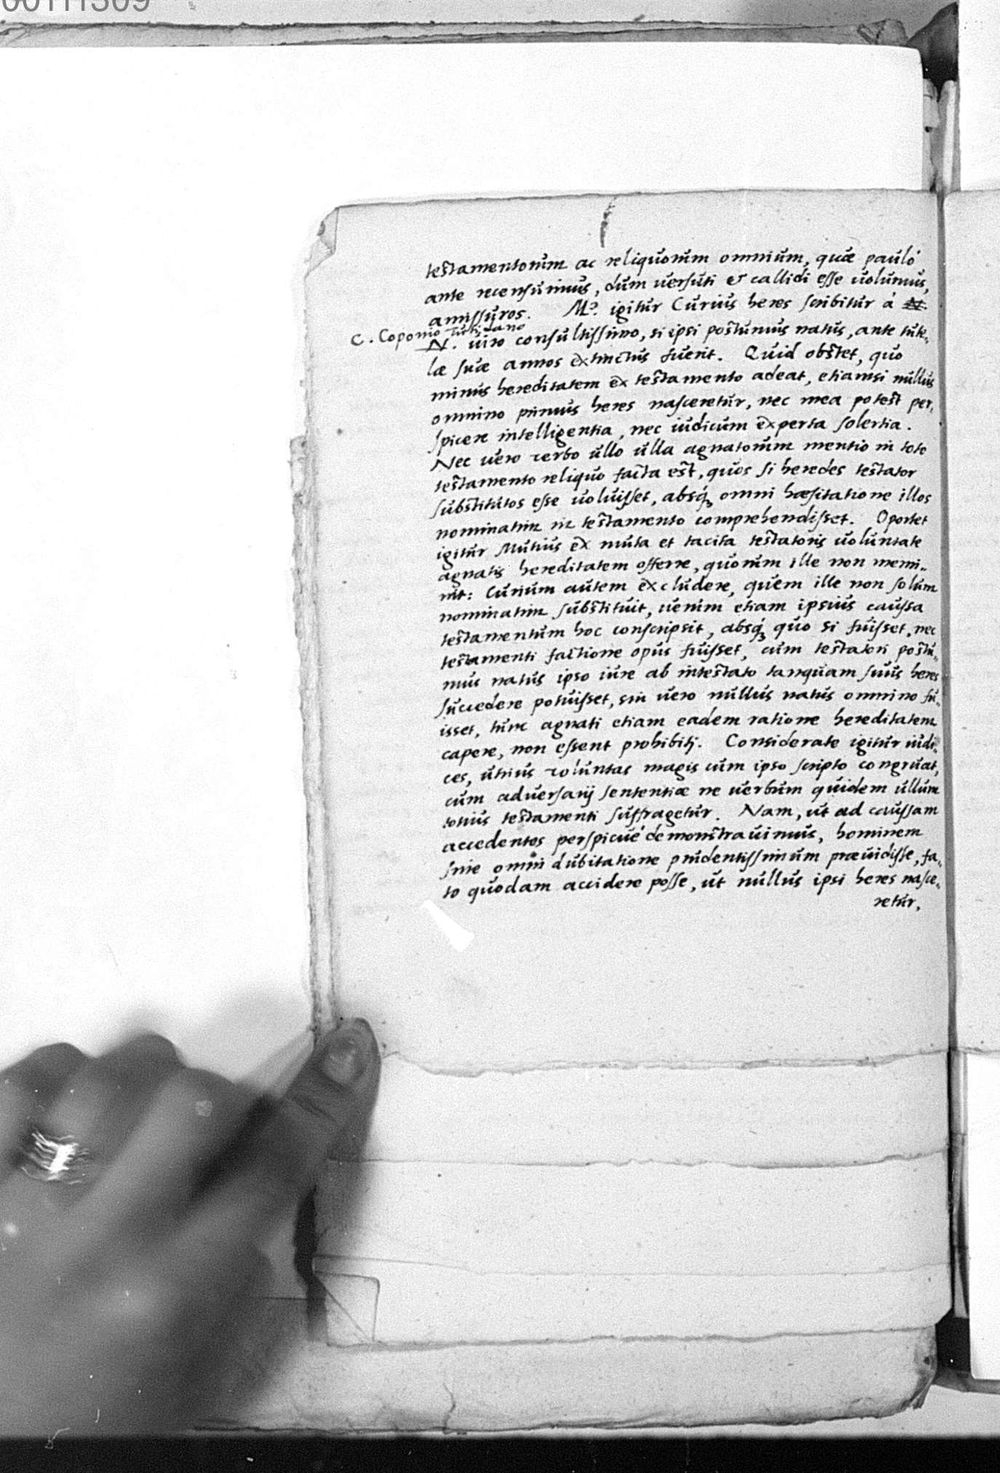 00111309
testamentorum ac reliquorum omnium, quæ pauló
ante recensuimus, dum versuti & callidi esse volumus,
amissuros. M. igitur Curius heres scribitur á N.
C. Coponio Turbidano
N. viro consultissimo, si ipsi postumus natus, ante tute-
læ suæ annos extinctus fuerit. Quid obstet, quo
minus hereditatem ex testamento adeat, etiamsi nullus
omnino primus heres nasceretur, nec mea potest per-
spicere intelligentia, nec iudicum experta solertia.
Nec vero verbo ullo ulla agnatorum mentio in toto
testamento reliquo facta est, quos si heredes testator
substitutos esse voluisset, absq; omni hæsitatione illos
nominatim in testamento comprehendisset. Oportet
igitur Mutius ex muta et tacita testatoris voluntate
agnatis hereditatem offerre, quorum ille non memi-
nit: Curium autem excludere, quem ille non solum
nominatim substituit, verum etiam ipsius caussa
testamentum hoc conscripsit, absq; quo si fuisset, nec
testamenti factione opus fuisset, cum testatori postu-
mus natus ipso iure ab intestato tanquam suus heres
succedere potuisset, sin vero nullus natus omnino fu-
isset, tunc agnati etiam eadem ratione hereditatem
capere, non essent prohibiti. Considerate igitur iudi-
ces, utrius voluntas magis cum ipso scripto congruat,
cum adversarij sententiæ ne verbum quidem ullum
totius testamenti suffragetur. Nam, ut ad caussam
accedentes perspicué demonstravimus, hominem
sine omni dubitatione prudentissimum prævidisse, fa-
to quodam accidere posse, ut nullus ipsi heres nasce-
retur,